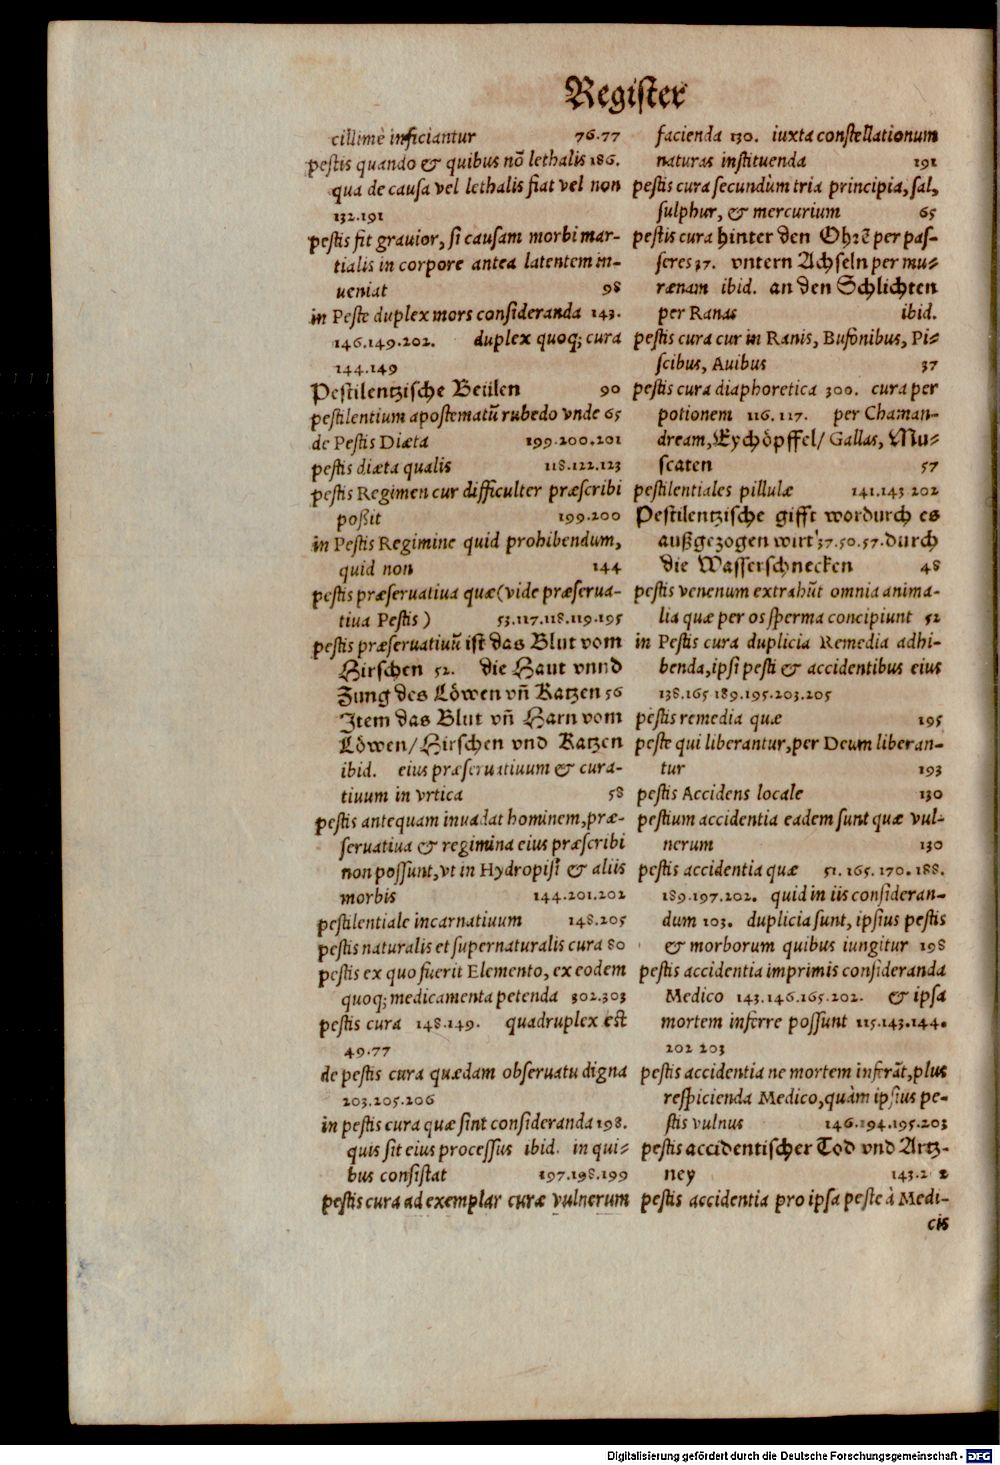 Register
cillimè inficiantur 76.77
pestis quando & quibus nō lethalis 186.
qua de causa vel lethalis fiat vel non
132.191
pestis fit grauior, si causam morbi mar-
tialis in corpore antea latentem in-
ueniat 98
in Peste duplex mors consideranda 143.
146.149.202. duplex quoq; cura
144.149
Pestilentzische Beülen 90
pestilentium apostematū rubedo vnde 65
de Pestis Diæta 199.200.201
pestis diæta qualis 118.122.123
pestis Regimen cur difficulter præscribi
poßit 199.200
in Pestis Regimine quid prohibendum,
quid non 144
pestis præseruatiua quæ (vide præserua-
tiua Pestis) 53.117.118.119.195
pestis præseruatiuū ist das Blut vom
Hirschen 52. die Haut vnnd
Zung des Löwen vñ Katzen 56
Item das Blut vñ Harn vom
Löwen/Hirschen vnd Katzen
ibid. eius præseruatiuum & cura-
tiuum in vrtica 58
pestis antequam inuadat hominem, præ-
seruatiua & regimina eius præscribi
non possunt, vt in Hydropisi & aliis
morbis 144.201.202
pestilentiale incarnatiuum 148.205
pestis naturalis et supernaturalis cura 80
pestis ex quo fuerit Elemento, ex eodem
quoq; medicamenta petenda 302.303
pestis cura 148.149. quadruplex est
49.77
de pestis cura quædam obseruatu digna
203.205.206
in pestis cura quæ sint consideranda 198.
quis sit eius processus ibid. in qui-
bus consistat 197.198.199
pestis cura ad exemplar curæ vulnerum
facienda 130. iuxta constellationum
naturas instituenda 191
pestis cura secundùm tria principia, sal,
sulphur, & mercurium 65
pestis cura hinter den Ohrē per pas-
seres 37. vntern Achseln per mu-
rænam ibid. an den Schlichten
per Ranas ibid.
pestis cura cur in Ranis, Bufonibus, Pi-
scibus, Auibus 37
pestis cura diaphoretica 300. cura per
potionem 116.117. per Chaman-
dream, Eychöpffel/ Gallas, Mu-
scaten 57
pestilentiales pillulæ 141.143 202
Pestilentzische gifft wordurch es
außgezogen wirt 37.50.57. durch
die Wasserschnecken 48
pestis venenum extrahūt omnia anima-
lia quæ per os sperma concipiunt 52
in Pestis cura duplicia Remedia adhi-
benda, ipsi pesti & accidentibus eius
138.165 189.195.203.205
pestis remedia quæ 195
peste qui liberantur, per Deum liberan-
tur 193
pestis Accidens locale 130
pestium accidentia eadem sunt quæ vul-
nerum 130
pestis accidentia quæ 51.165.170.188.
189.197.202. quid in iis consideran-
dum 103. duplicia sunt, ipsius pestis
& morborum quibus iungitur 198
pestis accidentia imprimis consideranda
Medico 143.146.165.202. & ipsa
mortem inferre possunt 115.143.144.
202 203
pestis accidentia ne mortem inferāt, plus
respicienda Medico, quàm ipsius pe-
stis vulnus 146.194.195.203
pestis accidentischer Tod vnd Artz-
ney 143.2 2
pestis accidentia pro ipsa peste à Medi-
cis
Digitalisierung gefördert durch die Deutsche Forschungsgemeinschaft - DFG